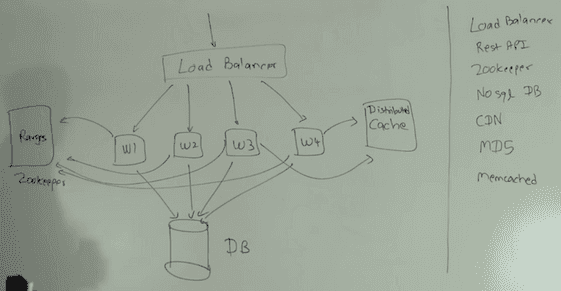 Load Balancer
Ranges
W1
W2
W3
W4
Distributed
Cache
Zookeeper
DB
Load Balancer
Rest API
Zookeeper
No sql DB
CDN
MD5
Memcached